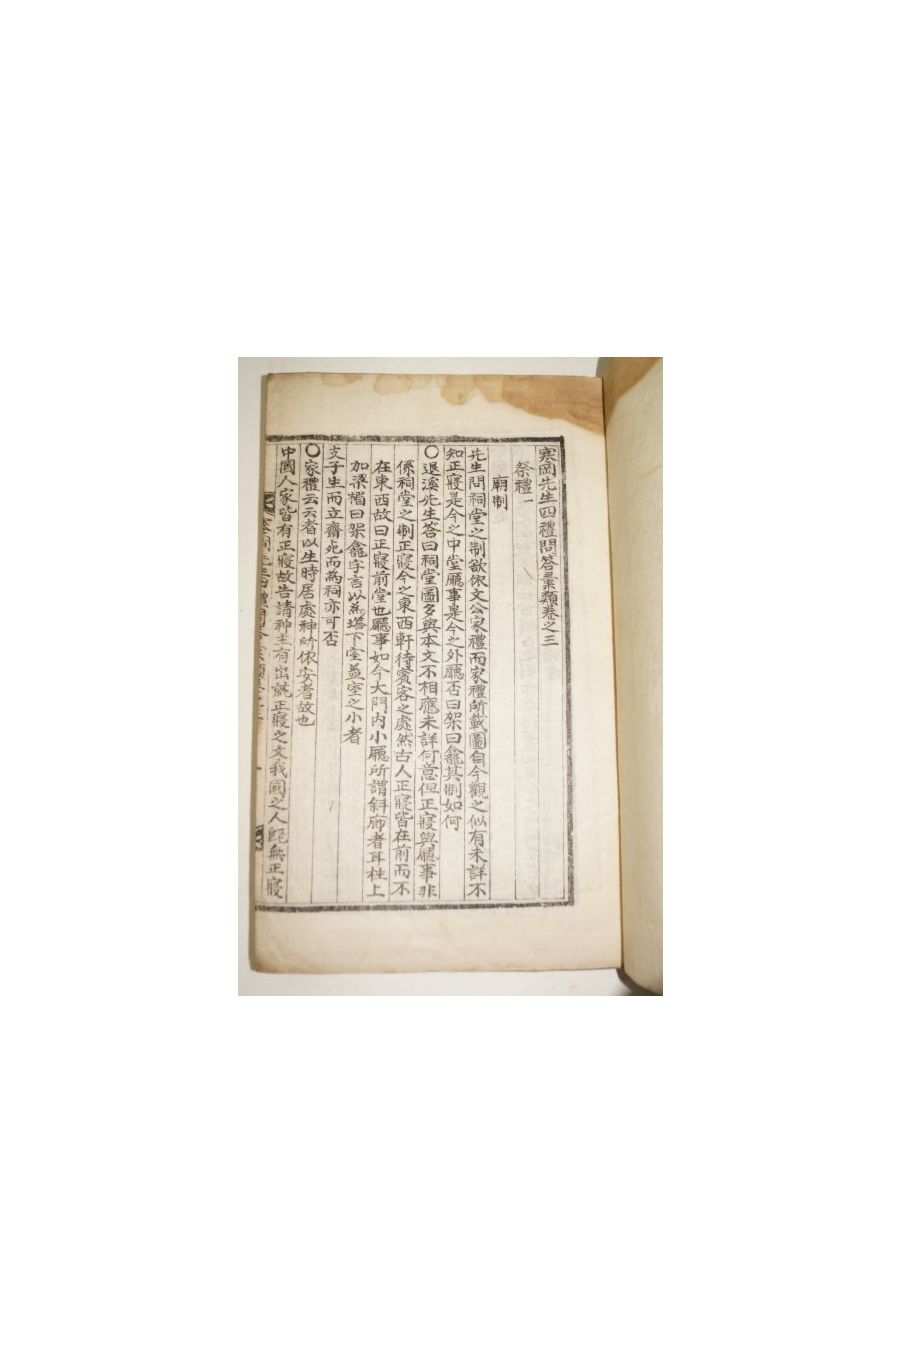 寒岡先生四禮問答彙類卷之三
祭禮一
廟制
先生問祠堂之制欲依文公家禮而家禮所載圖自今觀之似有未詳不
知正寢是今之中堂廳事是今之外廳否曰架曰龕其制如何
○退溪先生答曰祠堂圖多與本文不相應未詳何意但正寢與廳事非
係祠堂之制正寢今之東西軒待賓客之處然古人正寢皆在前而不
在東西故曰正寢前堂也廳事如今大門內小廳所謂斜廊者耳柱上
加梁楣曰架龕字言以為塔下室盖室之小者
支子生而立齋死而為祠亦可否
○家禮云云者以生時居處神所依安者故也
中國人家皆有正寢故告請神主有出就正寢之文我國之人旣無正寢